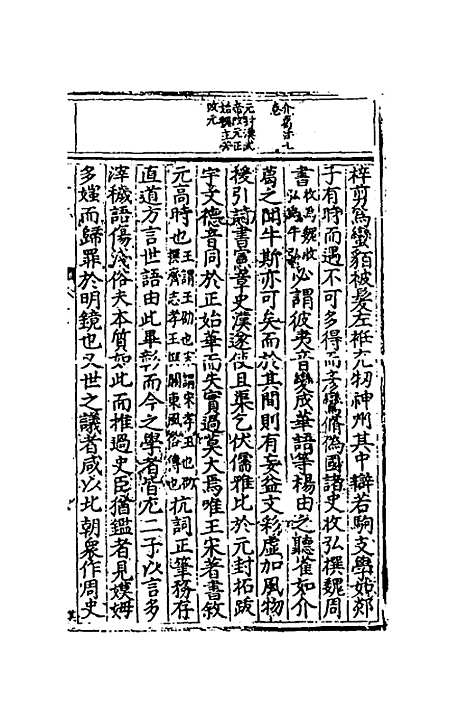 介葛
元封漢武
帝改元正
始魏主芳
改元
梓剪爲蠻貊被髮左衽充牣神州其中辯若駒支學如郯
子有時而遇不可多得而彥鸞脩僞國諸史收弘撰魏周
書收爲魏收弘爲牛弘必謂彼夷音變成華語等楊由之聽雀如介
葛之聞牛斯亦可矣而於其間則有妄益文彩虛加風物
後引詩書憲章史漢遂使且渠乞伏儒雅比於元封拓跋
宇文德音同於正始華而失實過莫大焉唯王宋著書敘
元高時也王謂王劭也宋謂宋孝王也劭撰齊志孝王撰關東風俗傳也抗詞正筆務存
直道方言世語由此畢彰而今之學者皆尤二子以言多
滓穢語傷淺俗夫本質如此而推過史臣猶鑑者見嫫姆
多媸而歸罪於明鏡也又世之議者咸以北朝衆作周史